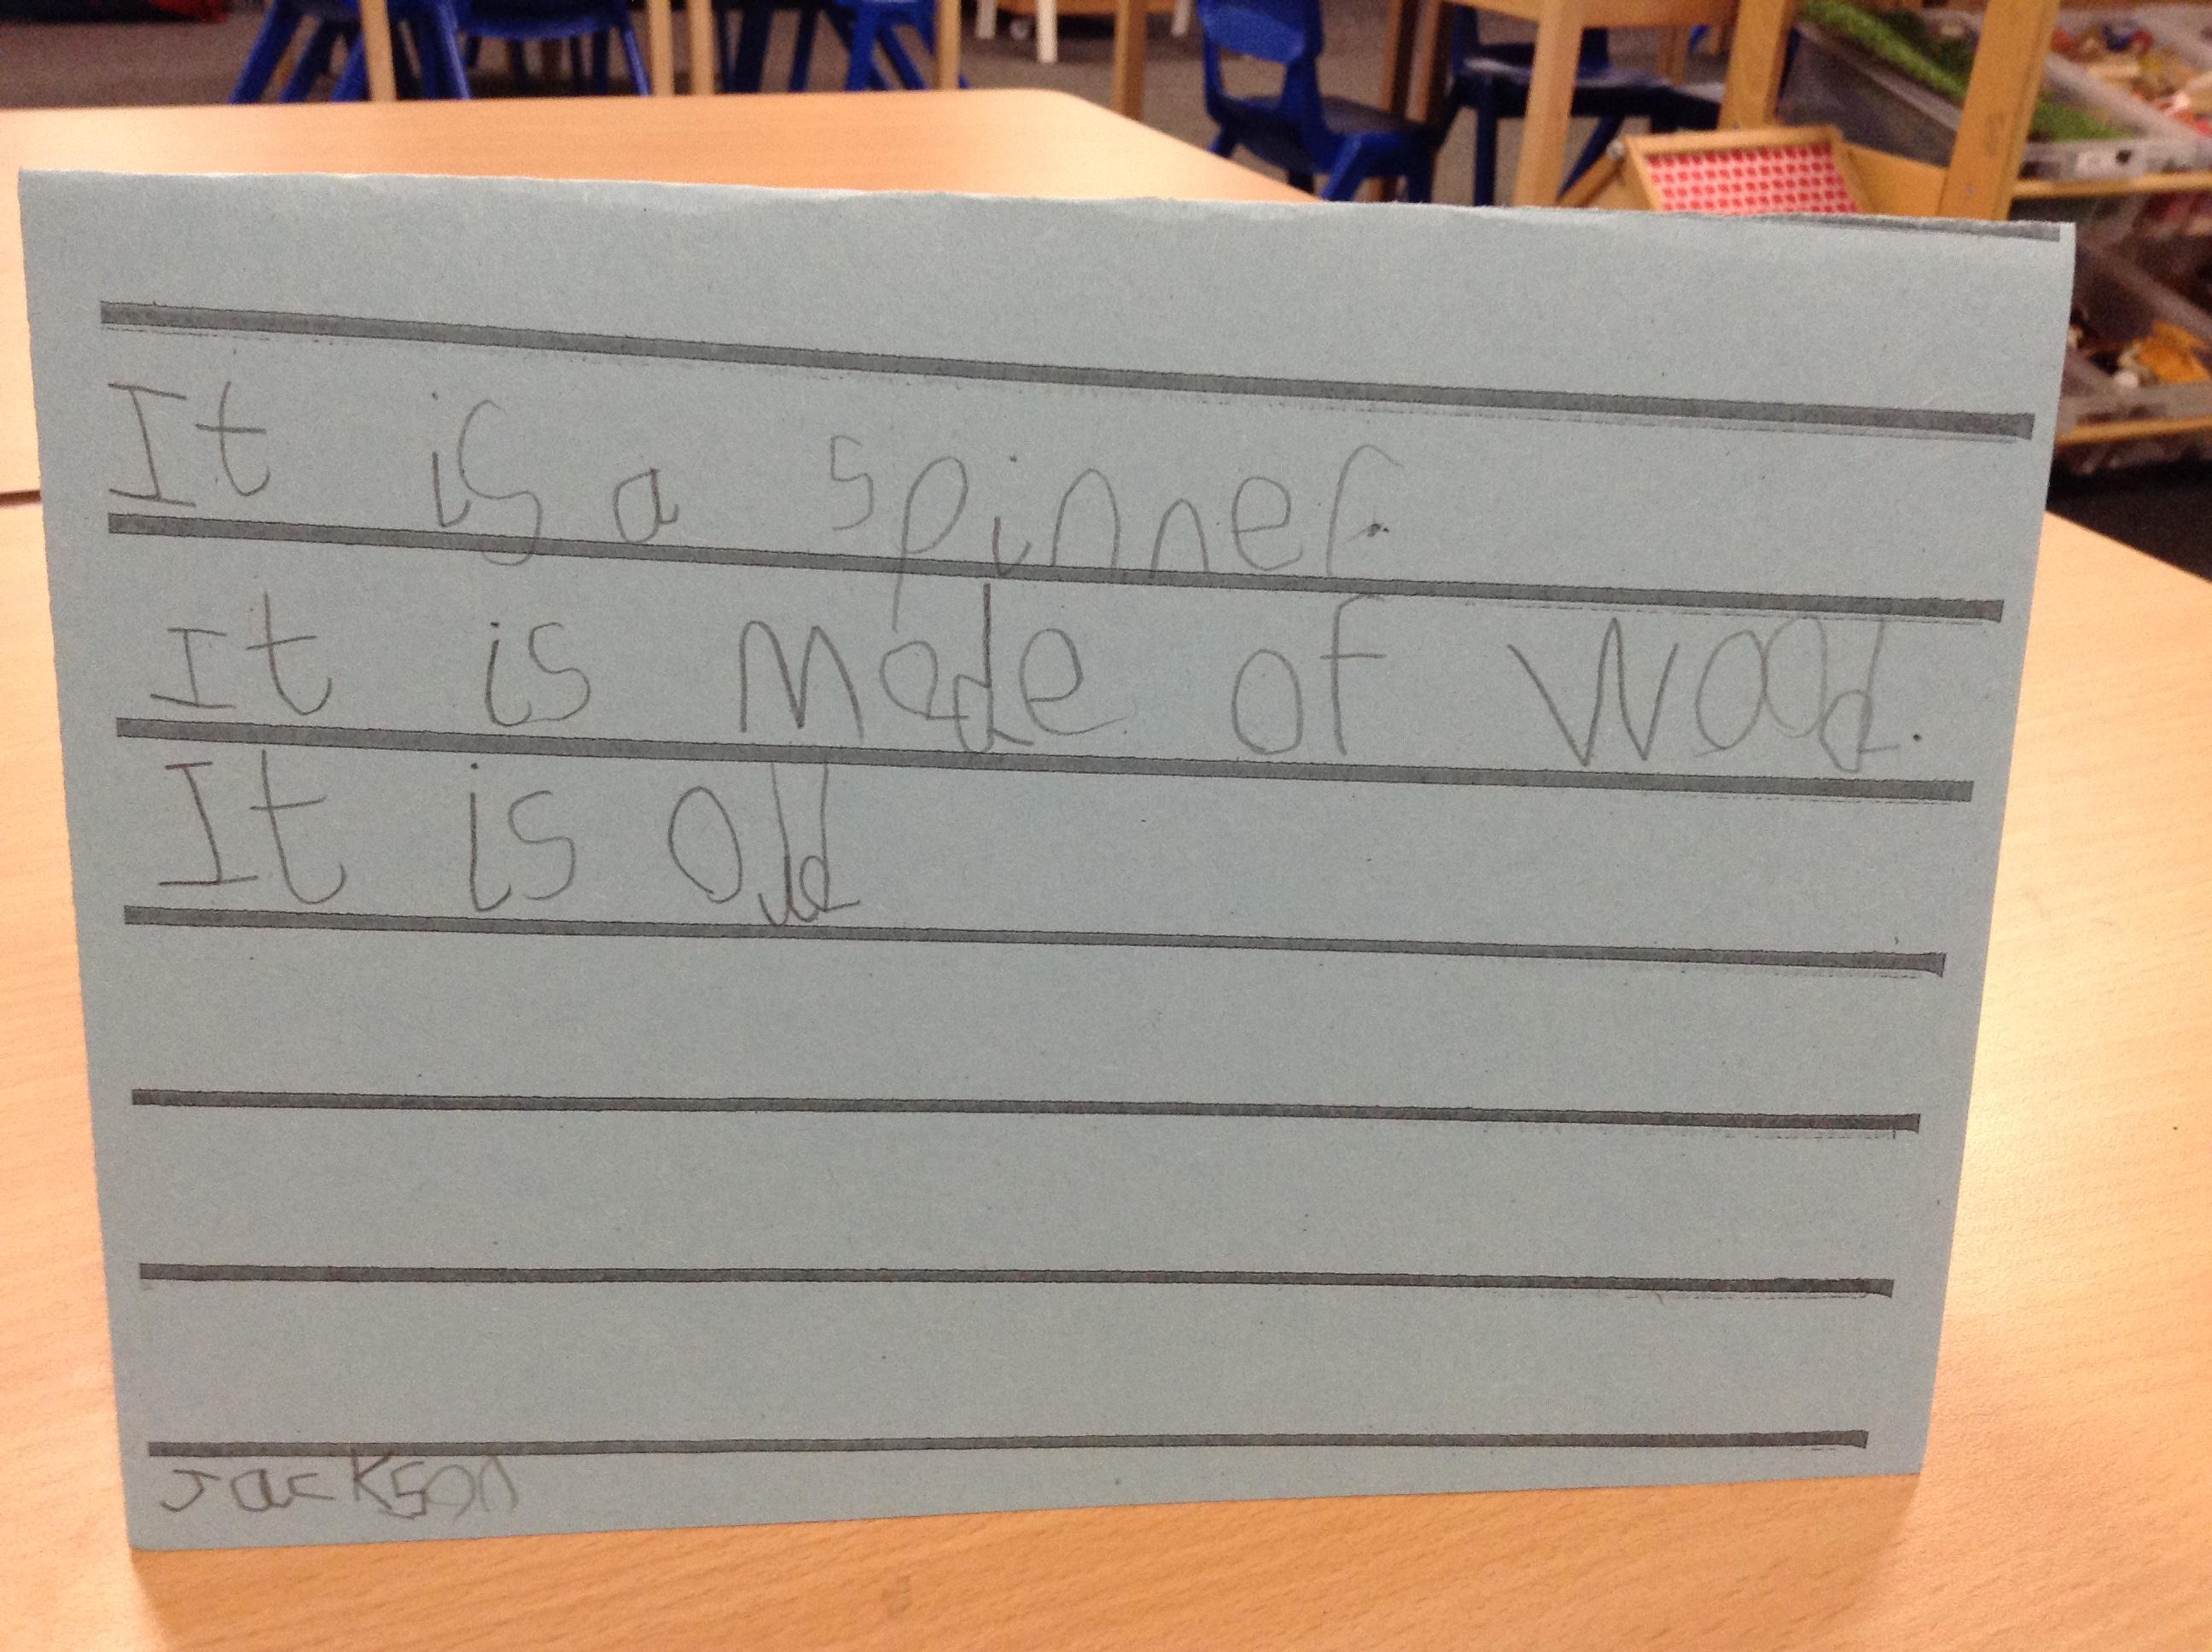 It is a spinner.
It is made of wood.
It is old
Jackson